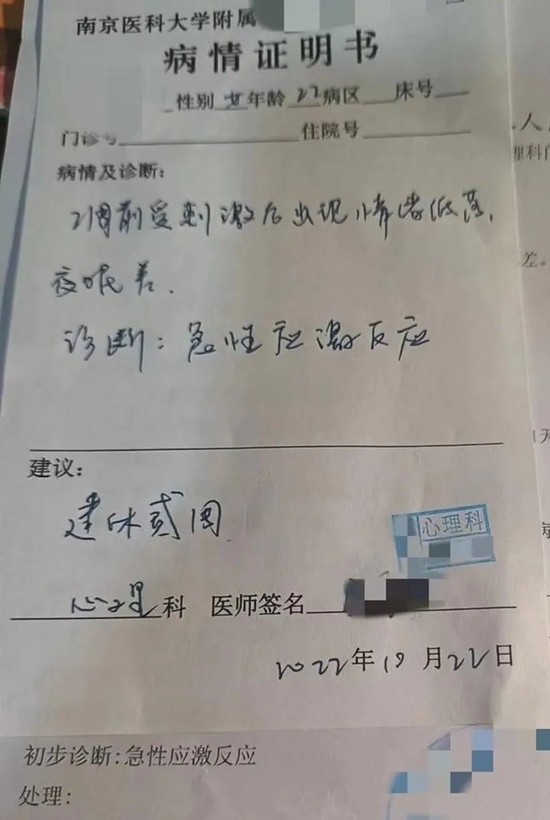 南京医科大学附属
病情证明书
性别 女 年龄 22 病区 床号
门诊号 住院号
病情及诊断:
2周前受刺激后出现情绪低落,
夜眠差.
诊断: 急性应激反应
建议:
建休贰周
心理科
心理科 医师签名
2022年10月22日
初步诊断:急性应激反应
处理:
人
理科门
差。
1天